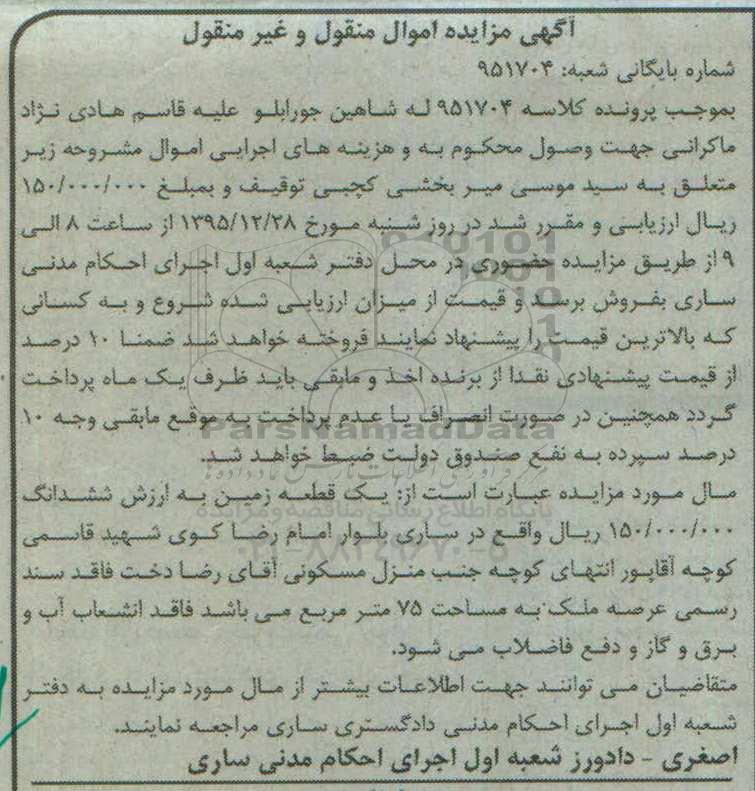 آگهی مزایده اموال منقول و غیر منقول
شماره بایگانی شعبه: ۹۵۱۷۰۴
بموجب پرونده کلاسه ۹۵۱۷۰۴ له شاهین جورابلو علیه قاسم هادی نژاد
ماکرانی جهت وصول محکوم به و هزینه های اجرایی اموال مشروحه زیر
متعلق به سید موسی میر بخشی کچبی توقیف و بمبلغ ۱۵۰/۰۰۰/۰۰۰
ریال ارزیابی و مقرر شد در روز شنبه مورخ ۱۳۹۵/۱۲/۲۸ از ساعت ۸ الی
۹ از طریق مزایده حضوری در محل دفتر شعبه اول اجرای احکام مدنی
ساری بفروش برسد و قیمت از میزان ارزیابی شده شروع و به کسانی
که بالاترین قیمت را پیشنهاد نمایند فروخته خواهد شد ضمنا ۱۰ درصد
از قیمت پیشنهادی نقدا از برنده اخذ و مابقی باید ظرف یک ماه پرداخت
گردد همچنین در صورت انصراف یا عدم پرداخت به موقع مابقی وجه ۱۰
درصد سپرده به نفع صندوق دولت ضبط خواهد شد.
مال مورد مزایده عبارت است از: یک قطعه زمین به ارزش ششدانگ
۱۵۰/۰۰۰/۰۰۰ ریال واقع در ساری بلوار امام رضا کوی شهید قاسمی
کوچه آقاپور انتهای کوچه جنب منزل مسکونی آقای رضا دخت فاقد سند
رسمی عرصه ملک به مساحت ۷۵ متر مربع می باشد فاقد انشعاب آب و
برق و گاز و دفع فاضلاب می شود.
متقاضیان می توانند جهت اطلاعات بیشتر از مال مورد مزایده به دفتر
شعبه اول اجرای احکام مدنی دادگستری ساری مراجعه نمایند.
اصغری - دادورز شعبه اول اجرای احکام مدنی ساری
ParsNamadData
پایگاه اطلاع رسانی مناقصه و مزایده
۰۲۱-۸۸۳۴۹۶۷۰-۵